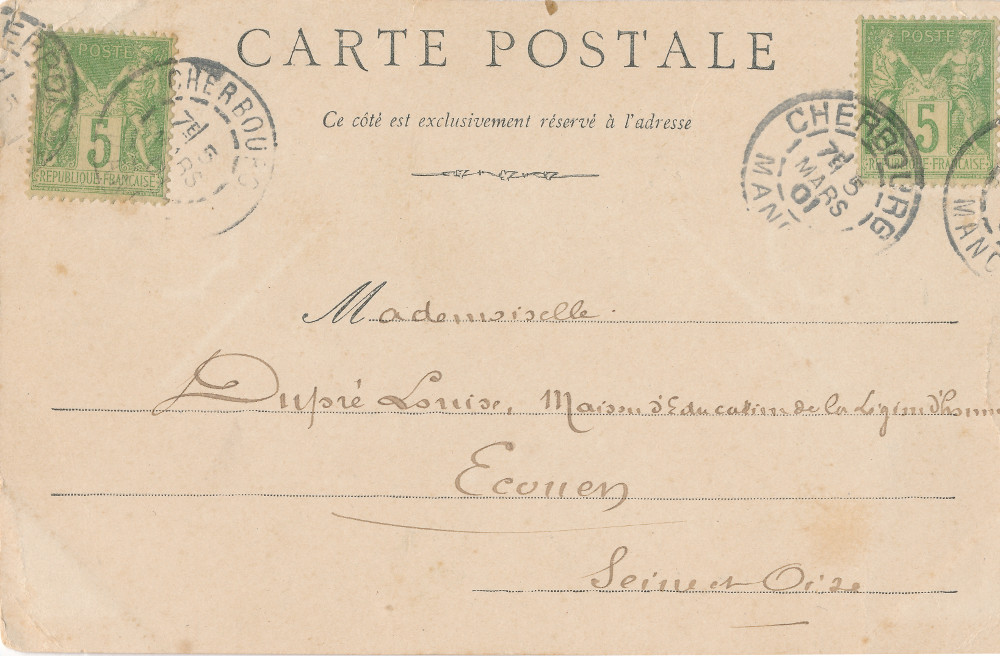 CARTE POSTALE
Ce côté est exclusivement réservé à l'adresse
POSTE
5
REPUBLIQUE FRANÇAISE
CHERBOURG
7E 5
MARS
POSTE
5
REPUBLIQUE FRANÇAISE
CHERBOURG
7E 5
MARS
01
MANC
MANC
Mademoiselle
Dupré Louise, Maison d'Education de la Légion d'honn
Ecouen
Seine et Oise